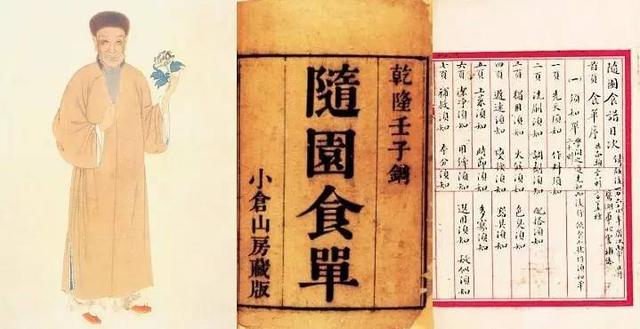 乾隆壬子鎸
隨園食單
小倉山房藏版
隨園食譜目次
首頁 食單序
一 須知單
一頁 先天須知 作料須知
二頁 洗刷須知 調劑須知 配搭須知
三頁 獨用須知 火候須知 色臭須知
四頁 遲速須知 變換須知 器具須知
五頁 上菜須知 時節須知 多寡須知
六頁 潔淨須知 用縴須知 選用須知 疑似須知
七頁 補救須知 本分須知